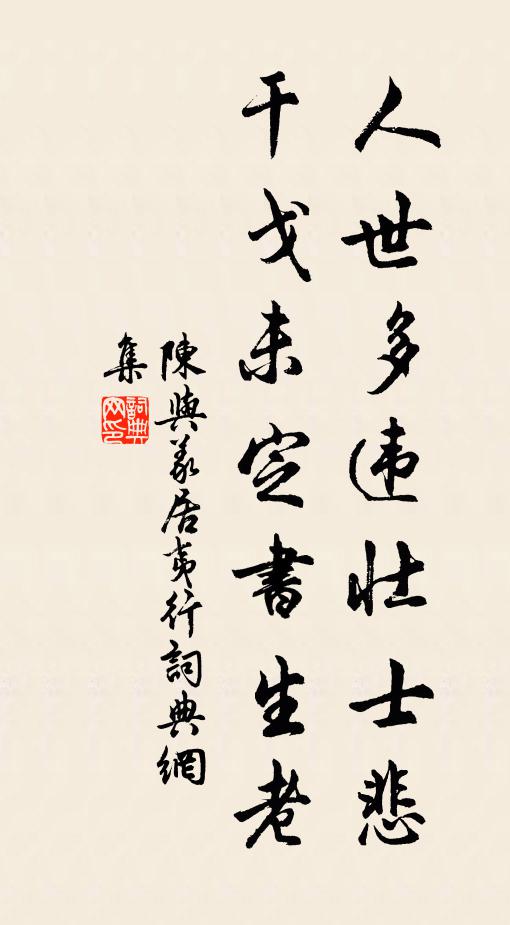 人世多违壮士悲
干戈未定書生老
陳與義居夷行詞典網
集
詞典
网印